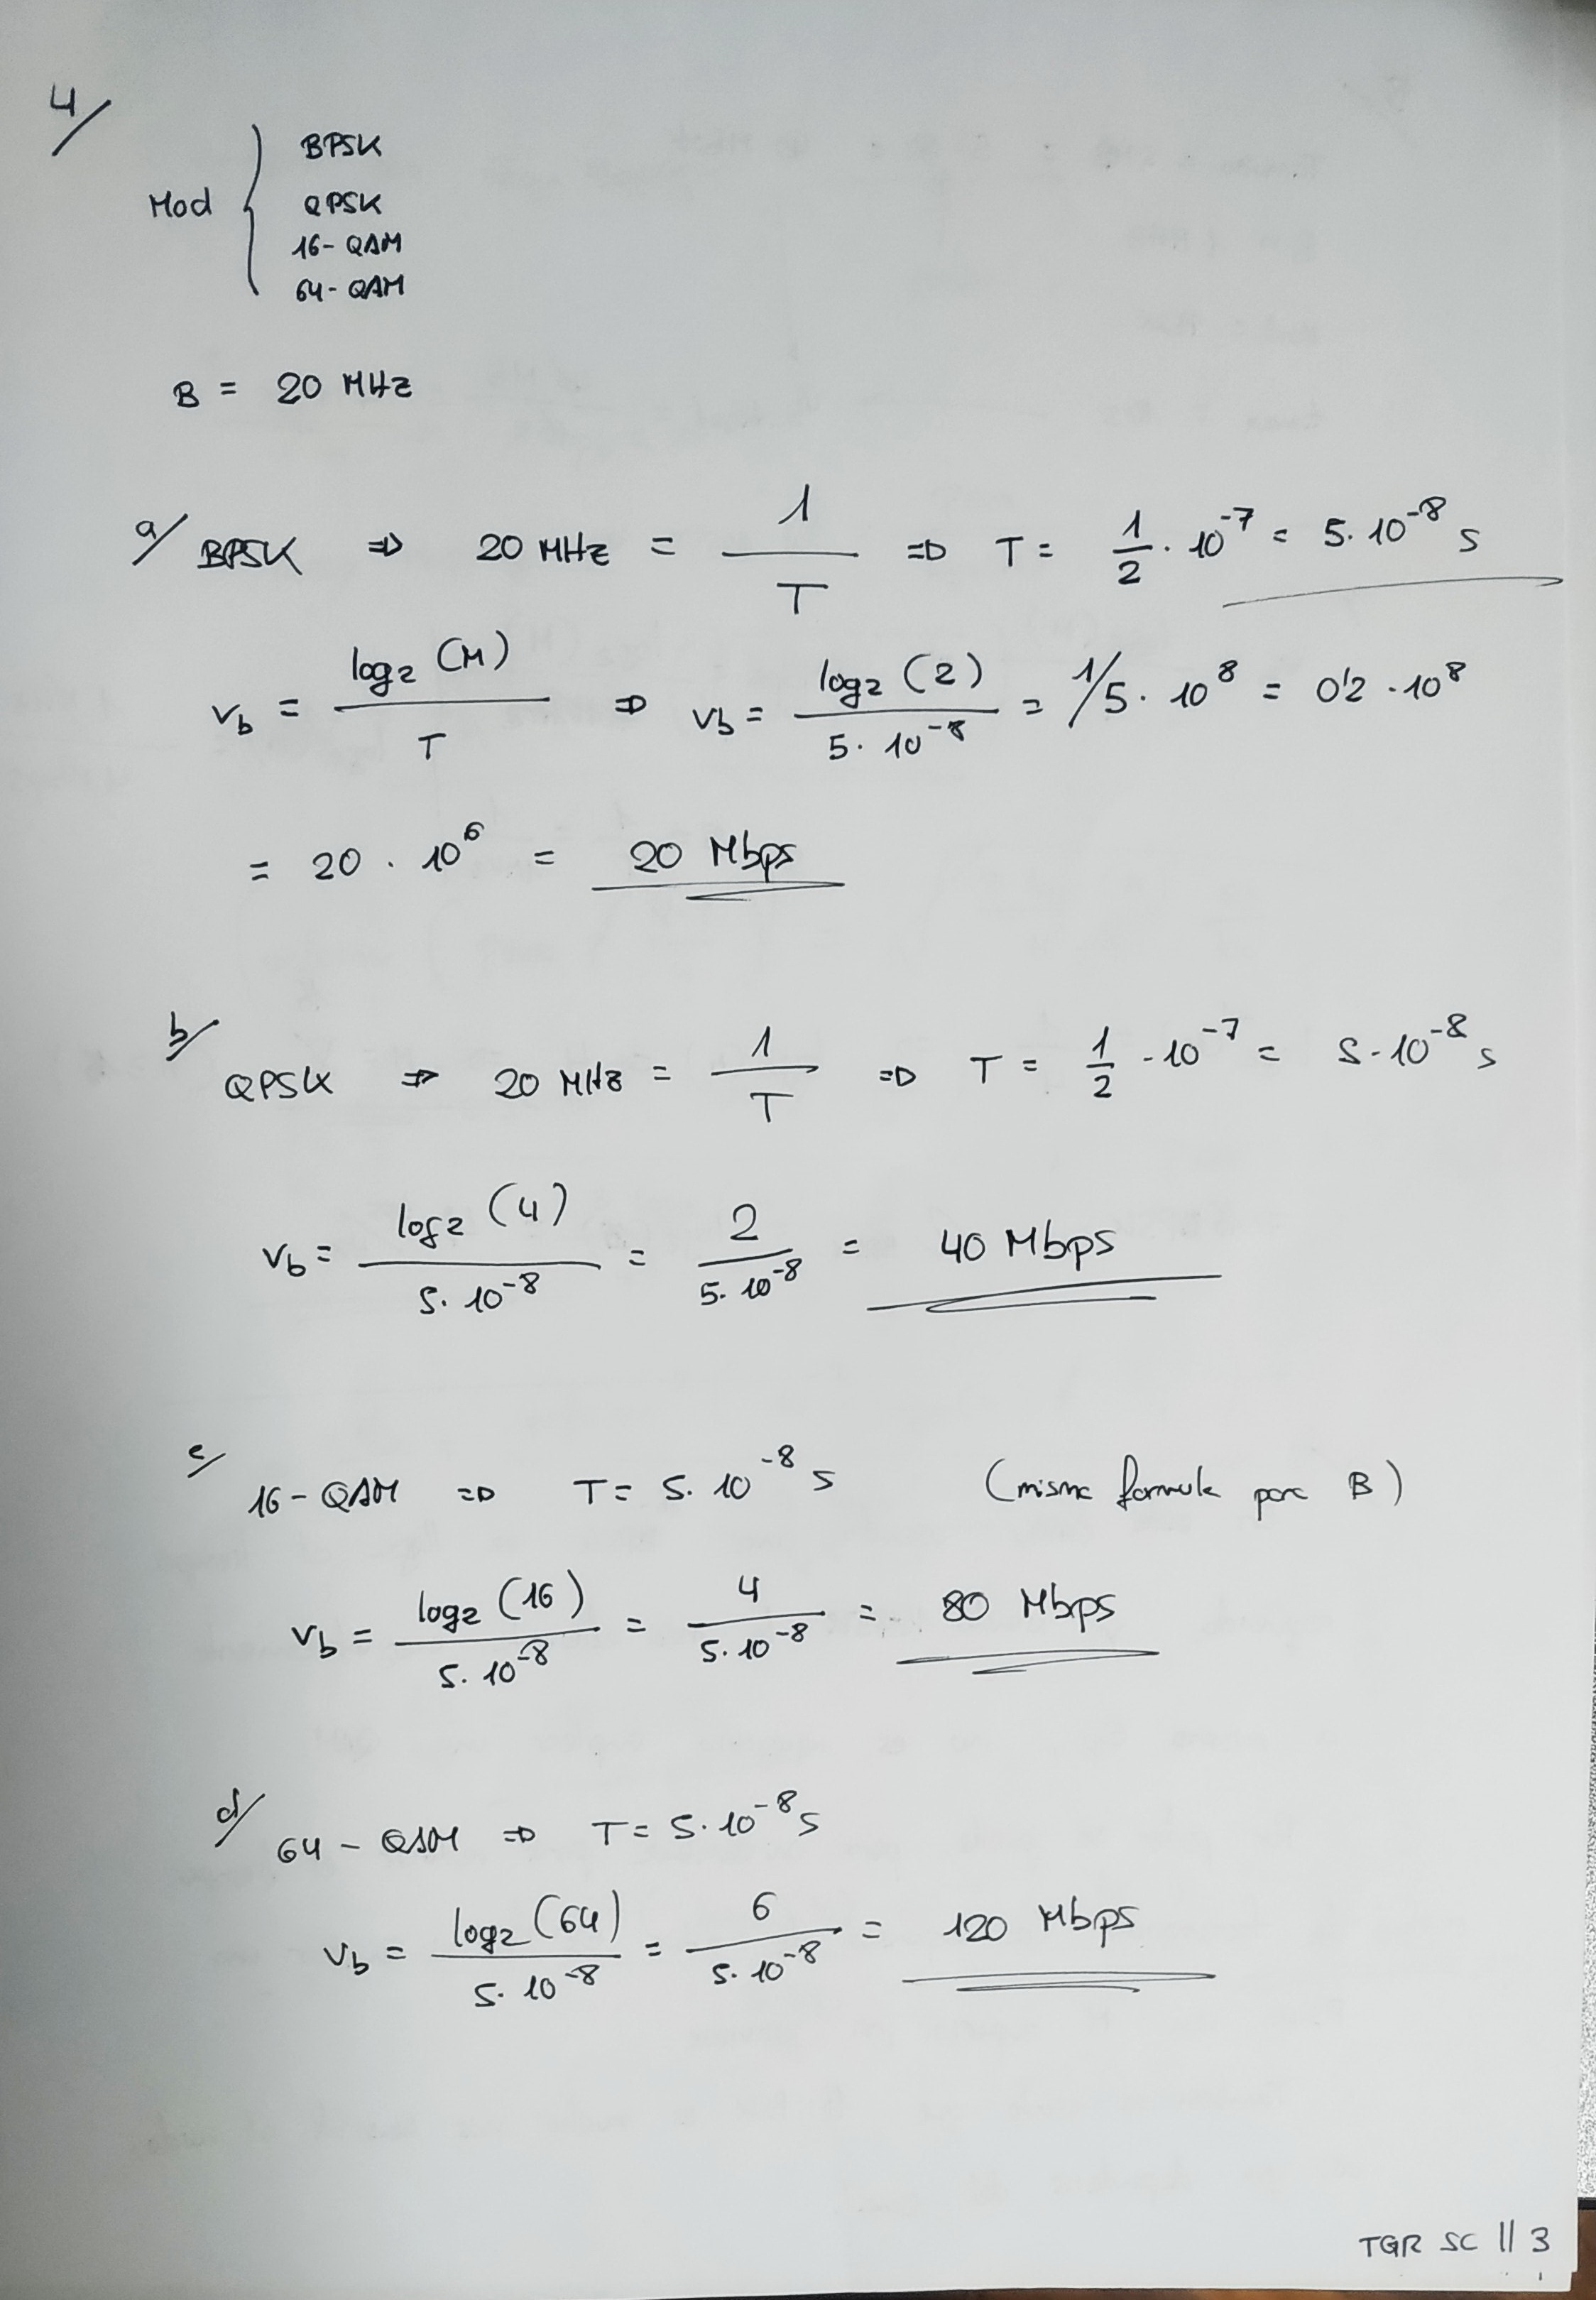 4/
Mod { BPSK
QPSK
16-QAM
64-QAM
B = 20 MHz
a/ BPSK ⇒ 20 MHz = 1/T ⇒ T = 1/2 · 10^-7 = 5·10^-8 s
vb = log2 (M) / T ⇒ vb = log2 (2) / 5·10^-8 = 1/5 · 10^8 = 0'2 · 10^8
= 20 · 10^6 = 20 Mbps
b/ QPSK ⇒ 20 MHz = 1/T ⇒ T = 1/2 · 10^-7 = 5·10^-8 s
vb = log2 (4) / 5·10^-8 = 2 / 5·10^-8 = 40 Mbps
c/ 16-QAM ⇒ T = 5·10^-8 s (misma formula para B)
vb = log2 (16) / 5·10^-8 = 4 / 5·10^-8 = 80 Mbps
d/ 64-QAM ⇒ T = 5·10^-8 s
vb = log2 (64) / 5·10^-8 = 6 / 5·10^-8 = 120 Mbps
TGR SC || 3